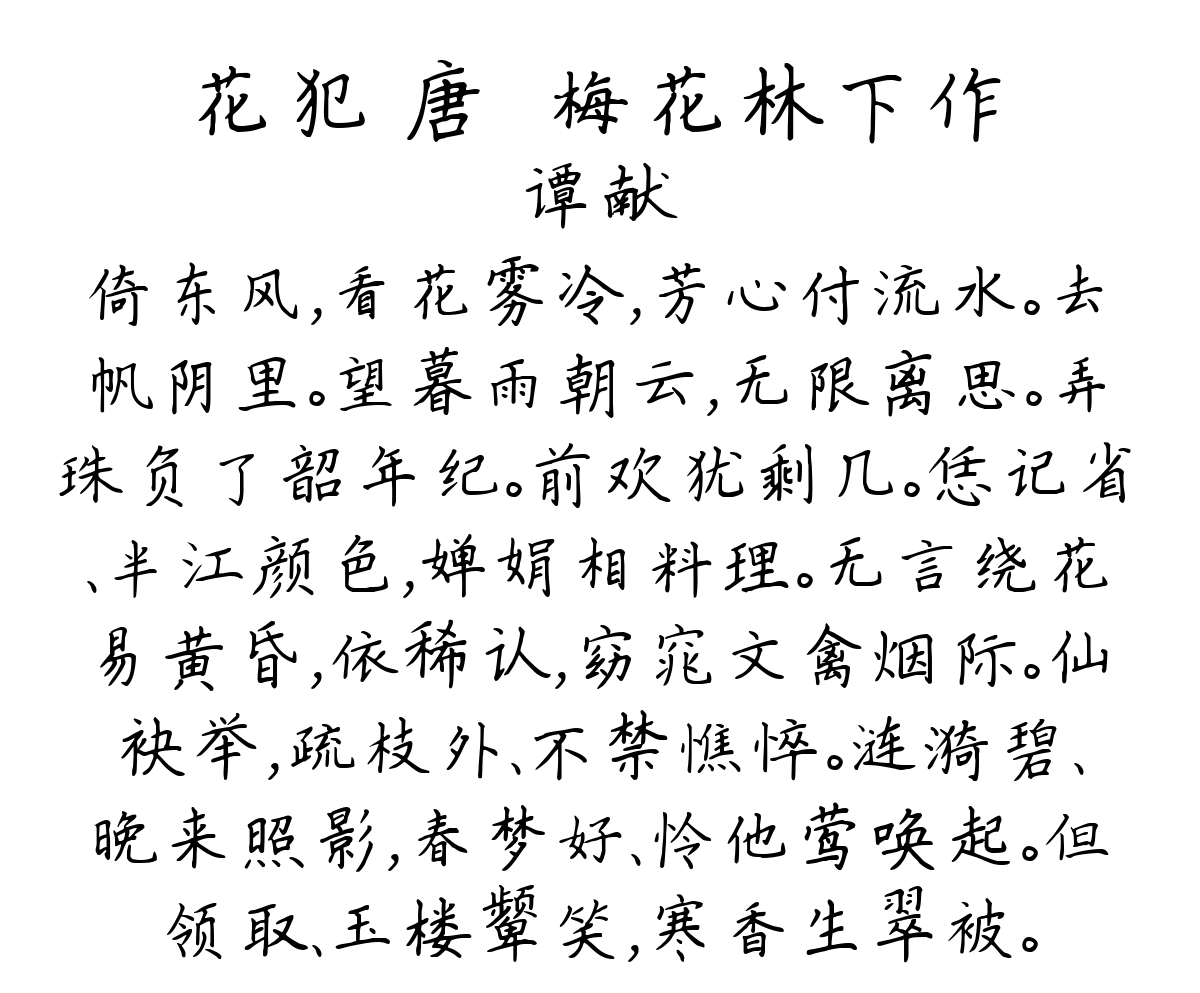 花犯 唐 梅花林下作
谭献
倚东风,看花雾冷,芳心付流水。去
帆阴里。望暮雨朝云,无限离思。弄
珠负了韶年纪。前欢犹剩几。恁记省
、半江颜色,婵娟相料理。无言绕花
易黄昏,依稀认,窈窕文禽烟际。仙
袂举,疏枝外、不禁憔悴。涟漪碧、
晚来照影,春梦好、怜他莺唤起。但
领取、玉楼颦笑,寒香生翠被。